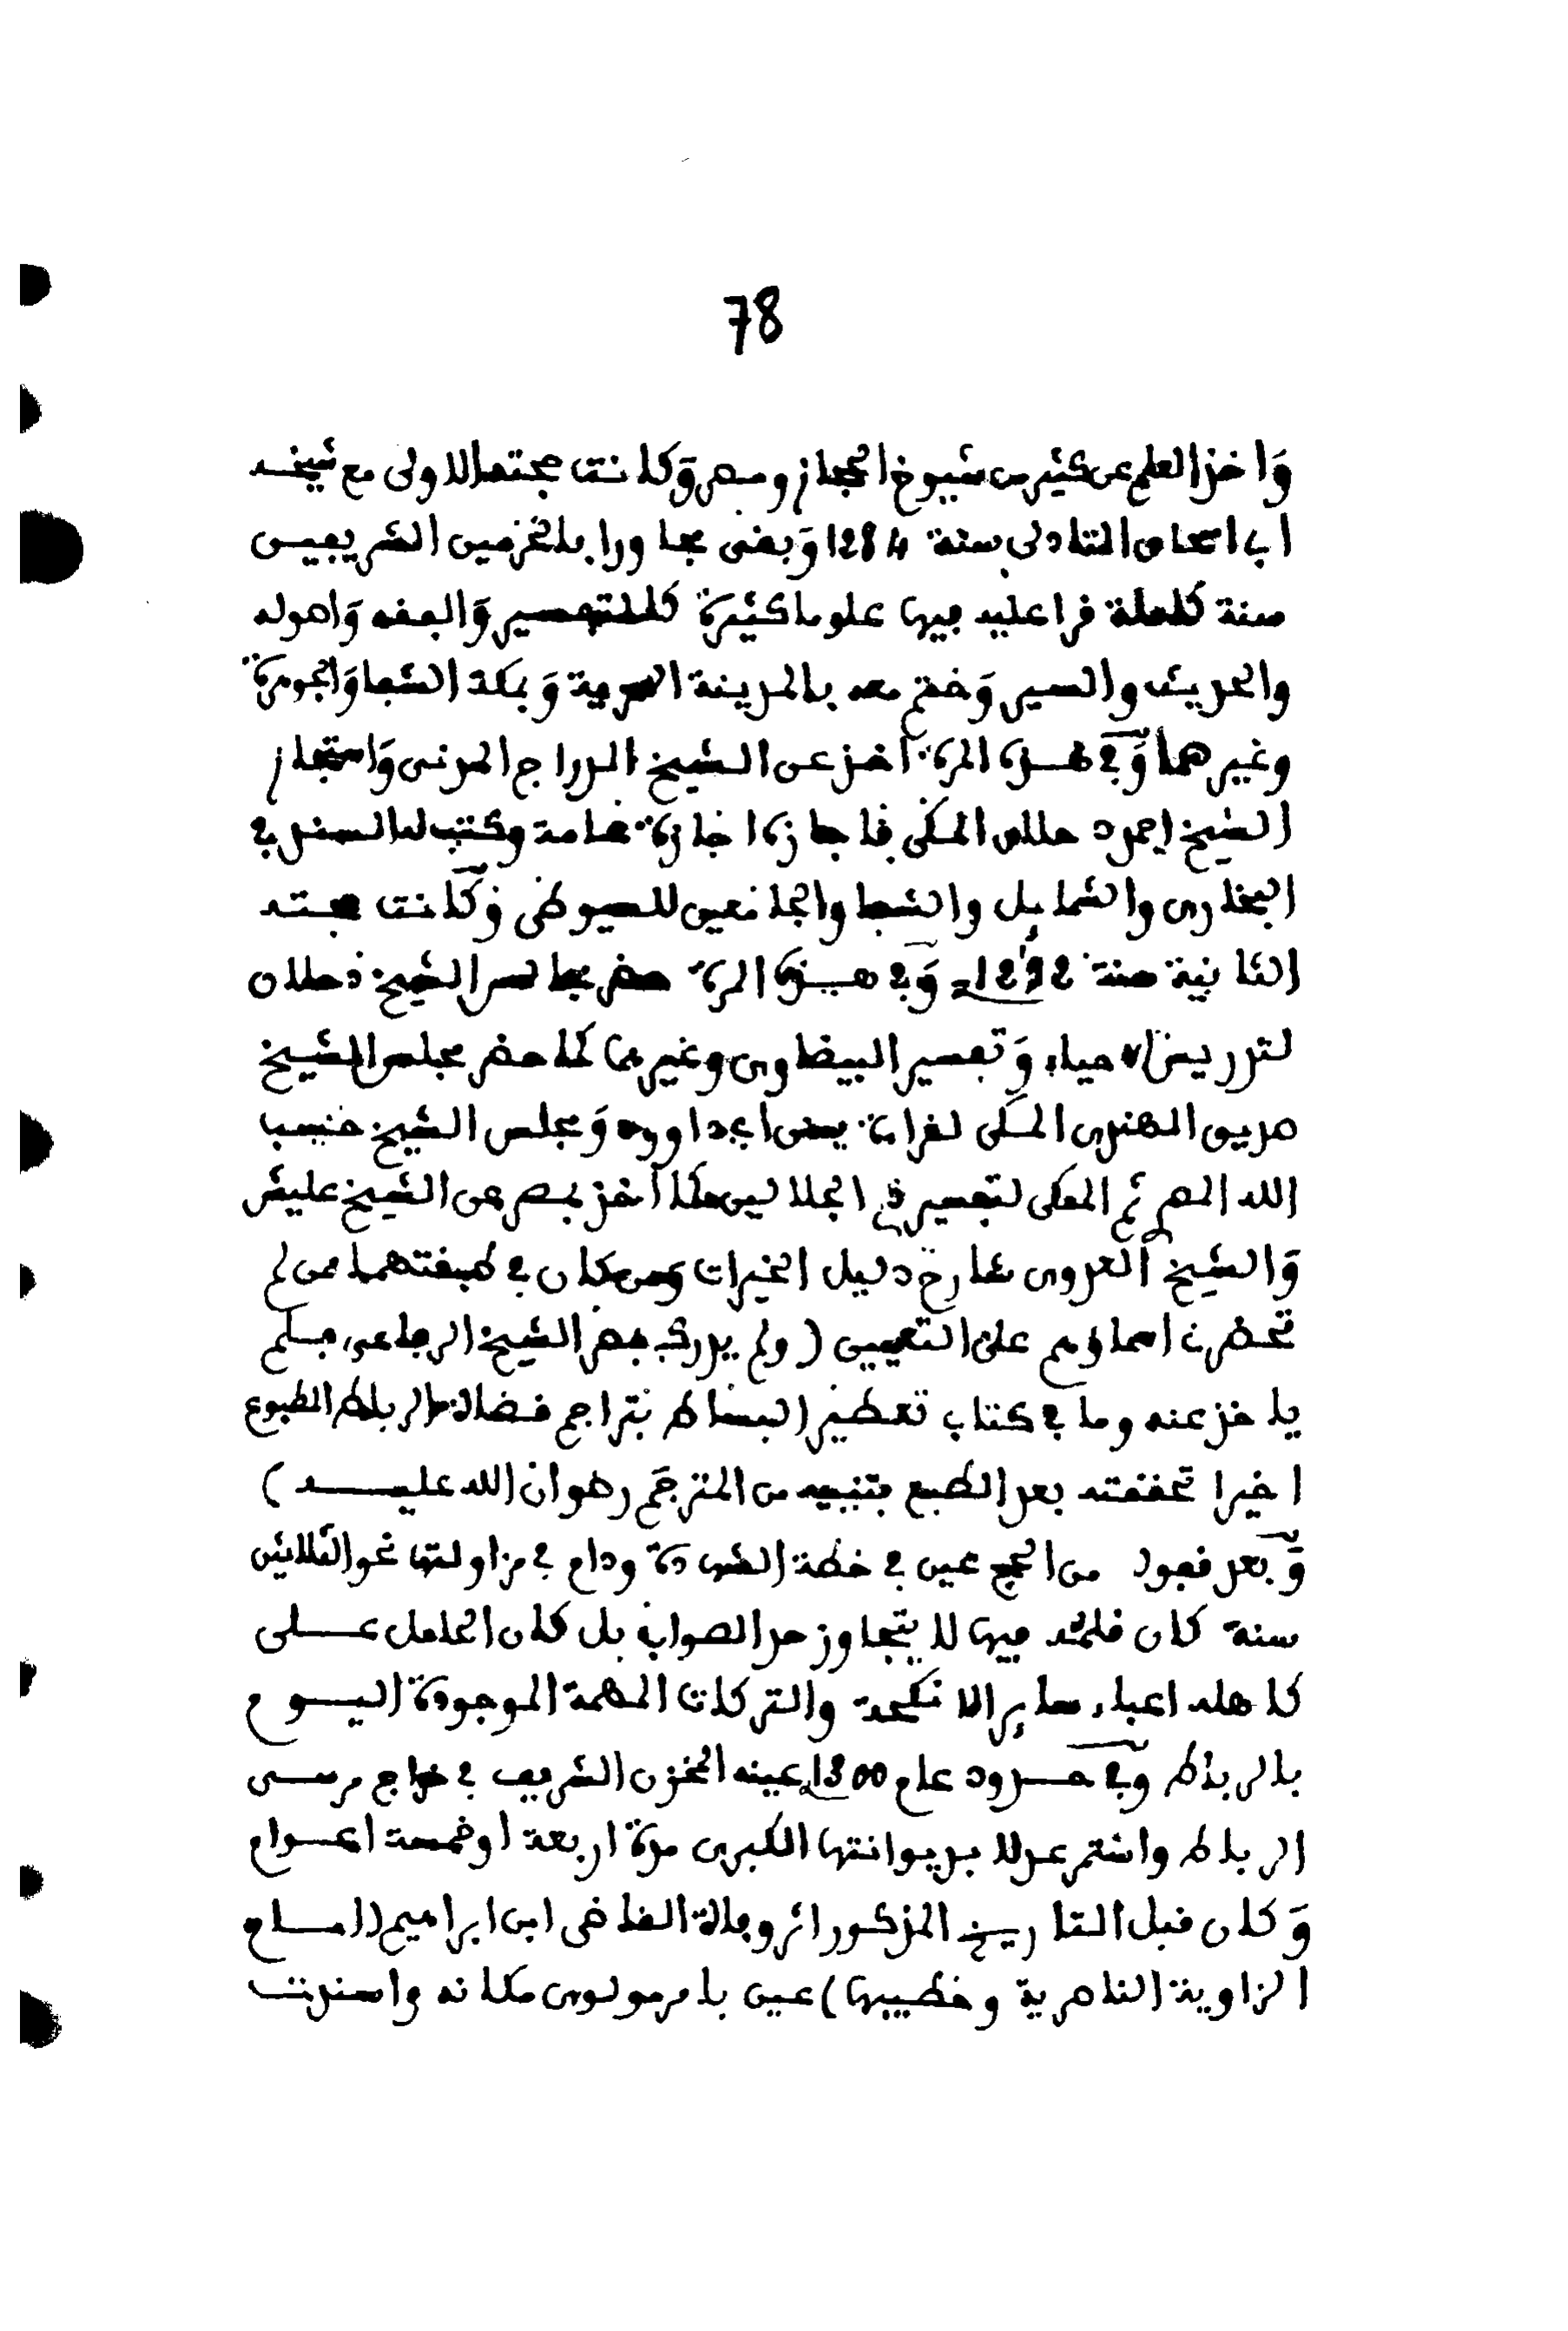 78
وَاخذ العلم عن كثير من شيوخ الحجاز ومصر وَكانت حجته الاولى مع شيخه
ابي اسحاق التادلي سنة 1284 وَبقى مجاورا بالحرمين الشريفين
سنة كاملة قرا عليه فيها علوما كثيرة كالتفسير وَالفقه وَاصوله
والحديث والسير وَختم معه بالمدينة وَبمكة الشفا وَالجوهرة
وغيرهما وَفي هذه المرة اخذ عن الشيخ الدراج المدني وَاستجاز
الشيخ احمد دحلان المكي فاجازه اجازة عامة وكتب له السند في
البخاري والشمايل والشفا والجامعين للسيوطي وَكانت حجته
الثانية سنة 1292 وَفي هذه المرة حضر مجالس الشيخ دحلان
لتدريس الاحياء وَتفسير البيضاوي وغيرهما كما حضر مجلس الشيخ
صديق الهندي المكي لقراءة سنن ابي داوود وَمجلس الشيخ حسب
الله المصري ثم المكي لتفسير الجلالين كما اخذ بمصر عن الشيخ عليش
وَالشيخ العدوي شارح دليل الخيرات ومن كان في طبقتهما ممن لم
تحضرن اسماؤهم على التعيين (ولم يدرك بمصر الشيخ الرفاعي فلم
ياخذ عنه وما في كتاب تعطير البساط بتراجم قضاة الرباط المطبوع
اخيرا تحققته بعد الطبع بتنبيه من المترجَم رضوان الله عليه)
وَبعد قفوله من الحج عين في خطة الشهادة ودام في مزاولتها نحو الثلاثين
سنة كان قلمه فيها لا يتجاوز حد الصواب بل كان الحامل على
كاهله اعباء ساير الانكحة والتركات المهمة الموجودة اليوم
بالرباط وفي حدود عام 1300 عينه المخزن الشريف في خراج مرسى
الرباط واستمر عدلا بديوانتها الكبرى مدة اربعة او خمسة اعوام
وَكان قبل التاريخ المذكور اثر وفاة القاضي ابن ابراهيم (امام
الزاوية الناصرية وخطيبها) عين بامر مولوي مكانه واسندت